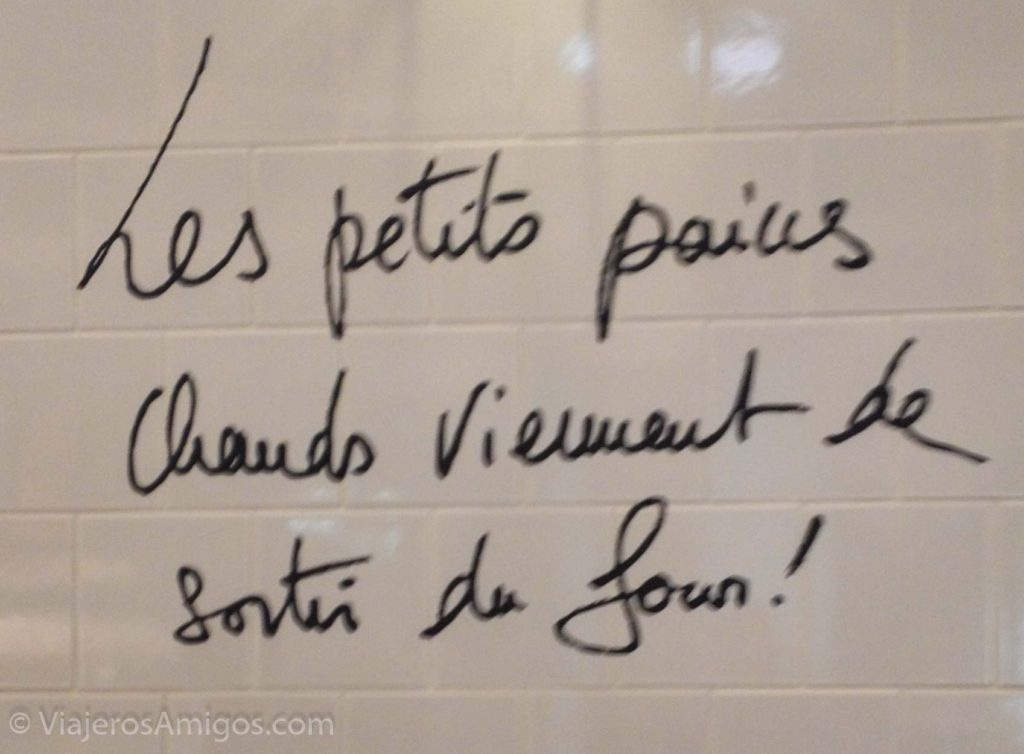 Les petits pains
Chauds viennent de
sortir du four!
© ViajerosAmigos.com